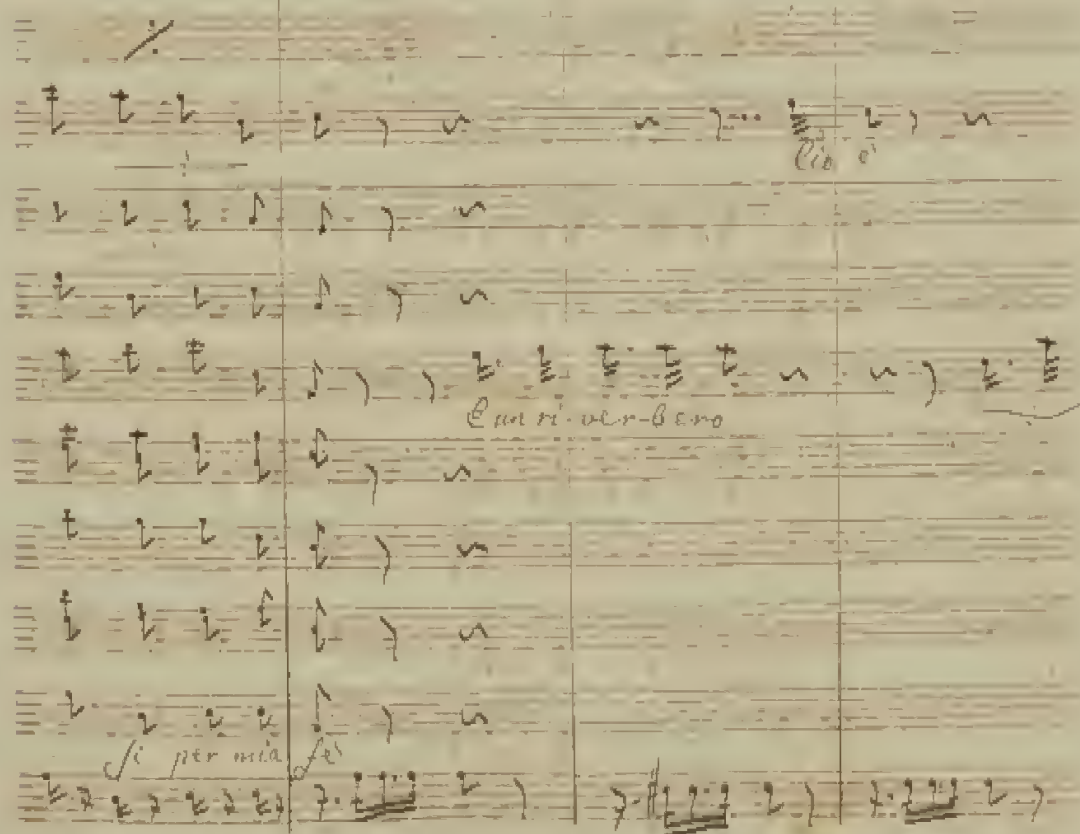 Ciò è
È un ri-ver-bero
Sì per mia fè